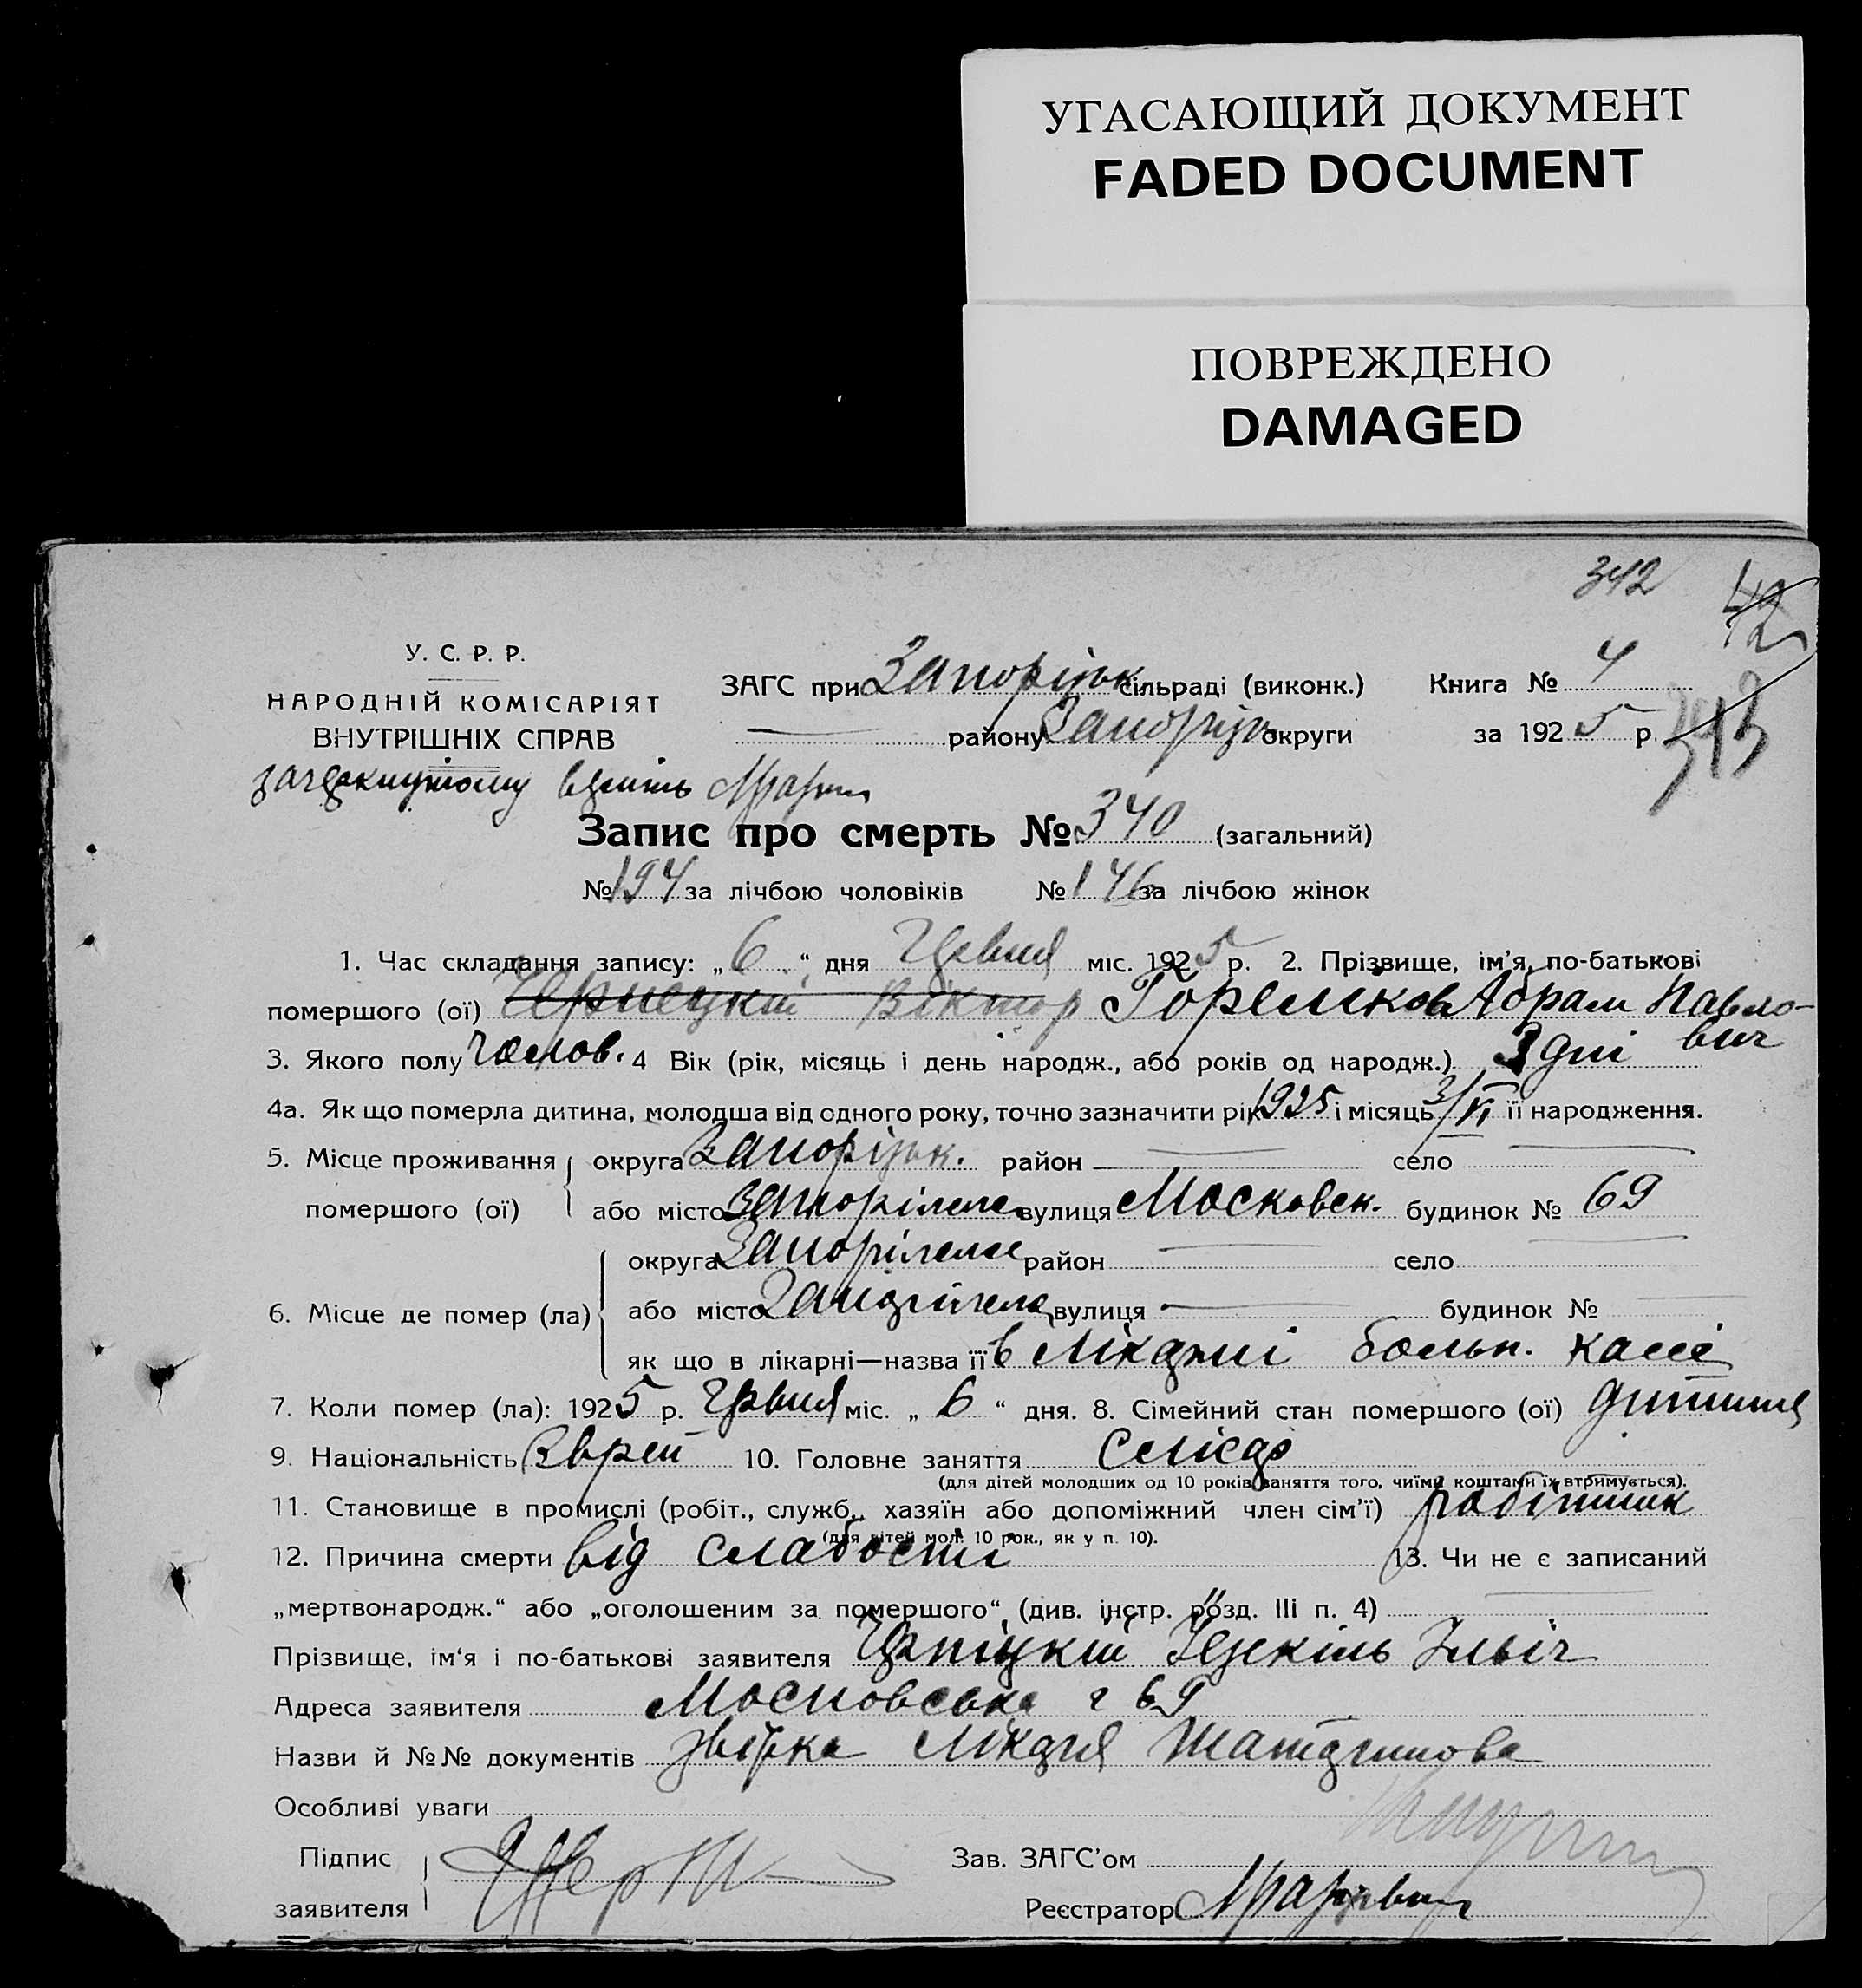 УГАСАЮЩИЙ ДОКУМЕНТ
FADED DOCUMENT
ПОВРЕЖДЕНО
DAMAGED
342
42
343
У. С. Р. Р.
НАРОДНІЙ КОМІСАРІЯТ
ВНУТРІШНІХ СПРАВ
ЗАГС при Запорізьк. сільраді (виконк.) Книга № 4
— району Запорізьк округи за 1925 р.
Запис про смерть № 340 (загальний)
№ 194 за лічбою чоловіків № 146 за лічбою жінок
1. Час складання запису: „6“ дня Червня міс. 1925 р. 2. Прізвище, ім'я, по-батькові
помершого (ої) Чернецкий Віктор Гореликов Абрам Павло-
вич
3. Якого полу чолов. 4 Вік (рік, місяць і день народж., або років од народж.) 3 дні
4а. Як що померла дитина, молодша від одного року, точно зазначити рік 1925 і місяць 3/VI її народження.
5. Місце проживання округа Запорізьк. район — село —
помершого (ої) або місто Запоріжже вулиця Московск. будинок № 69
округа Запоріжже район — село —
6. Місце де помер (ла) або місто Запоріжже вулиця — будинок № —
як що в лікарні—назва її в Лікарні больн. касі
7. Коли помер (ла): 1925 р. Червня міс. „6“ дня. 8. Сімейний стан помершого (ої) дитина
9. Національність Еврей 10. Головне заняття Слюсар
(для дітей молодших од 10 років заняття того, чиїми коштами їх втримується).
11. Становище в промислі (робіт., служб., хазяїн або допоміжний член сім'ї) робітник
(для дітей мол. 10 рок., як у п. 10).
12. Причина смерти від слабости 13. Чи не є записаний
„мертвонародж.“ або „оголошеним за помершого“ (див. інстр. розд. III п. 4) —
Прізвище, ім'я і по-батькові заявителя Ільіч
Адреса заявителя Московська 69
Назви й №№ документів лікаря
Особливі уваги
Підпис
заявителя
Зав. ЗАГС'ом
Реєстратор